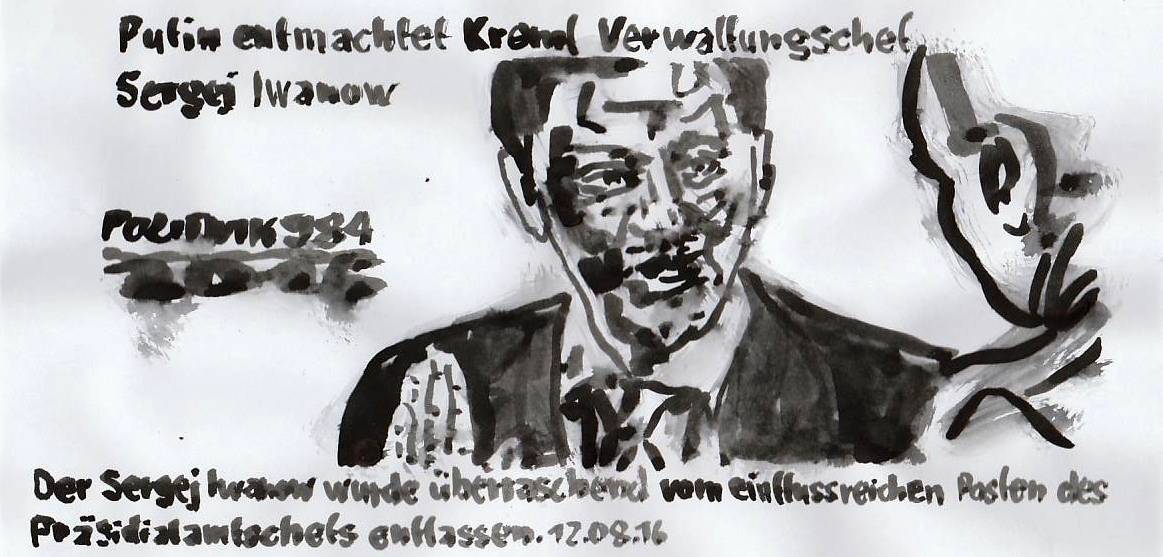 Putin entmachtet Kreml Verwaltungschef
Sergej Iwanow
POLITNIK984
Der Sergej Iwanow wurde überraschend vom einflussreichen Posten des
Präsidialamtschefs entlassen. 12.08.16